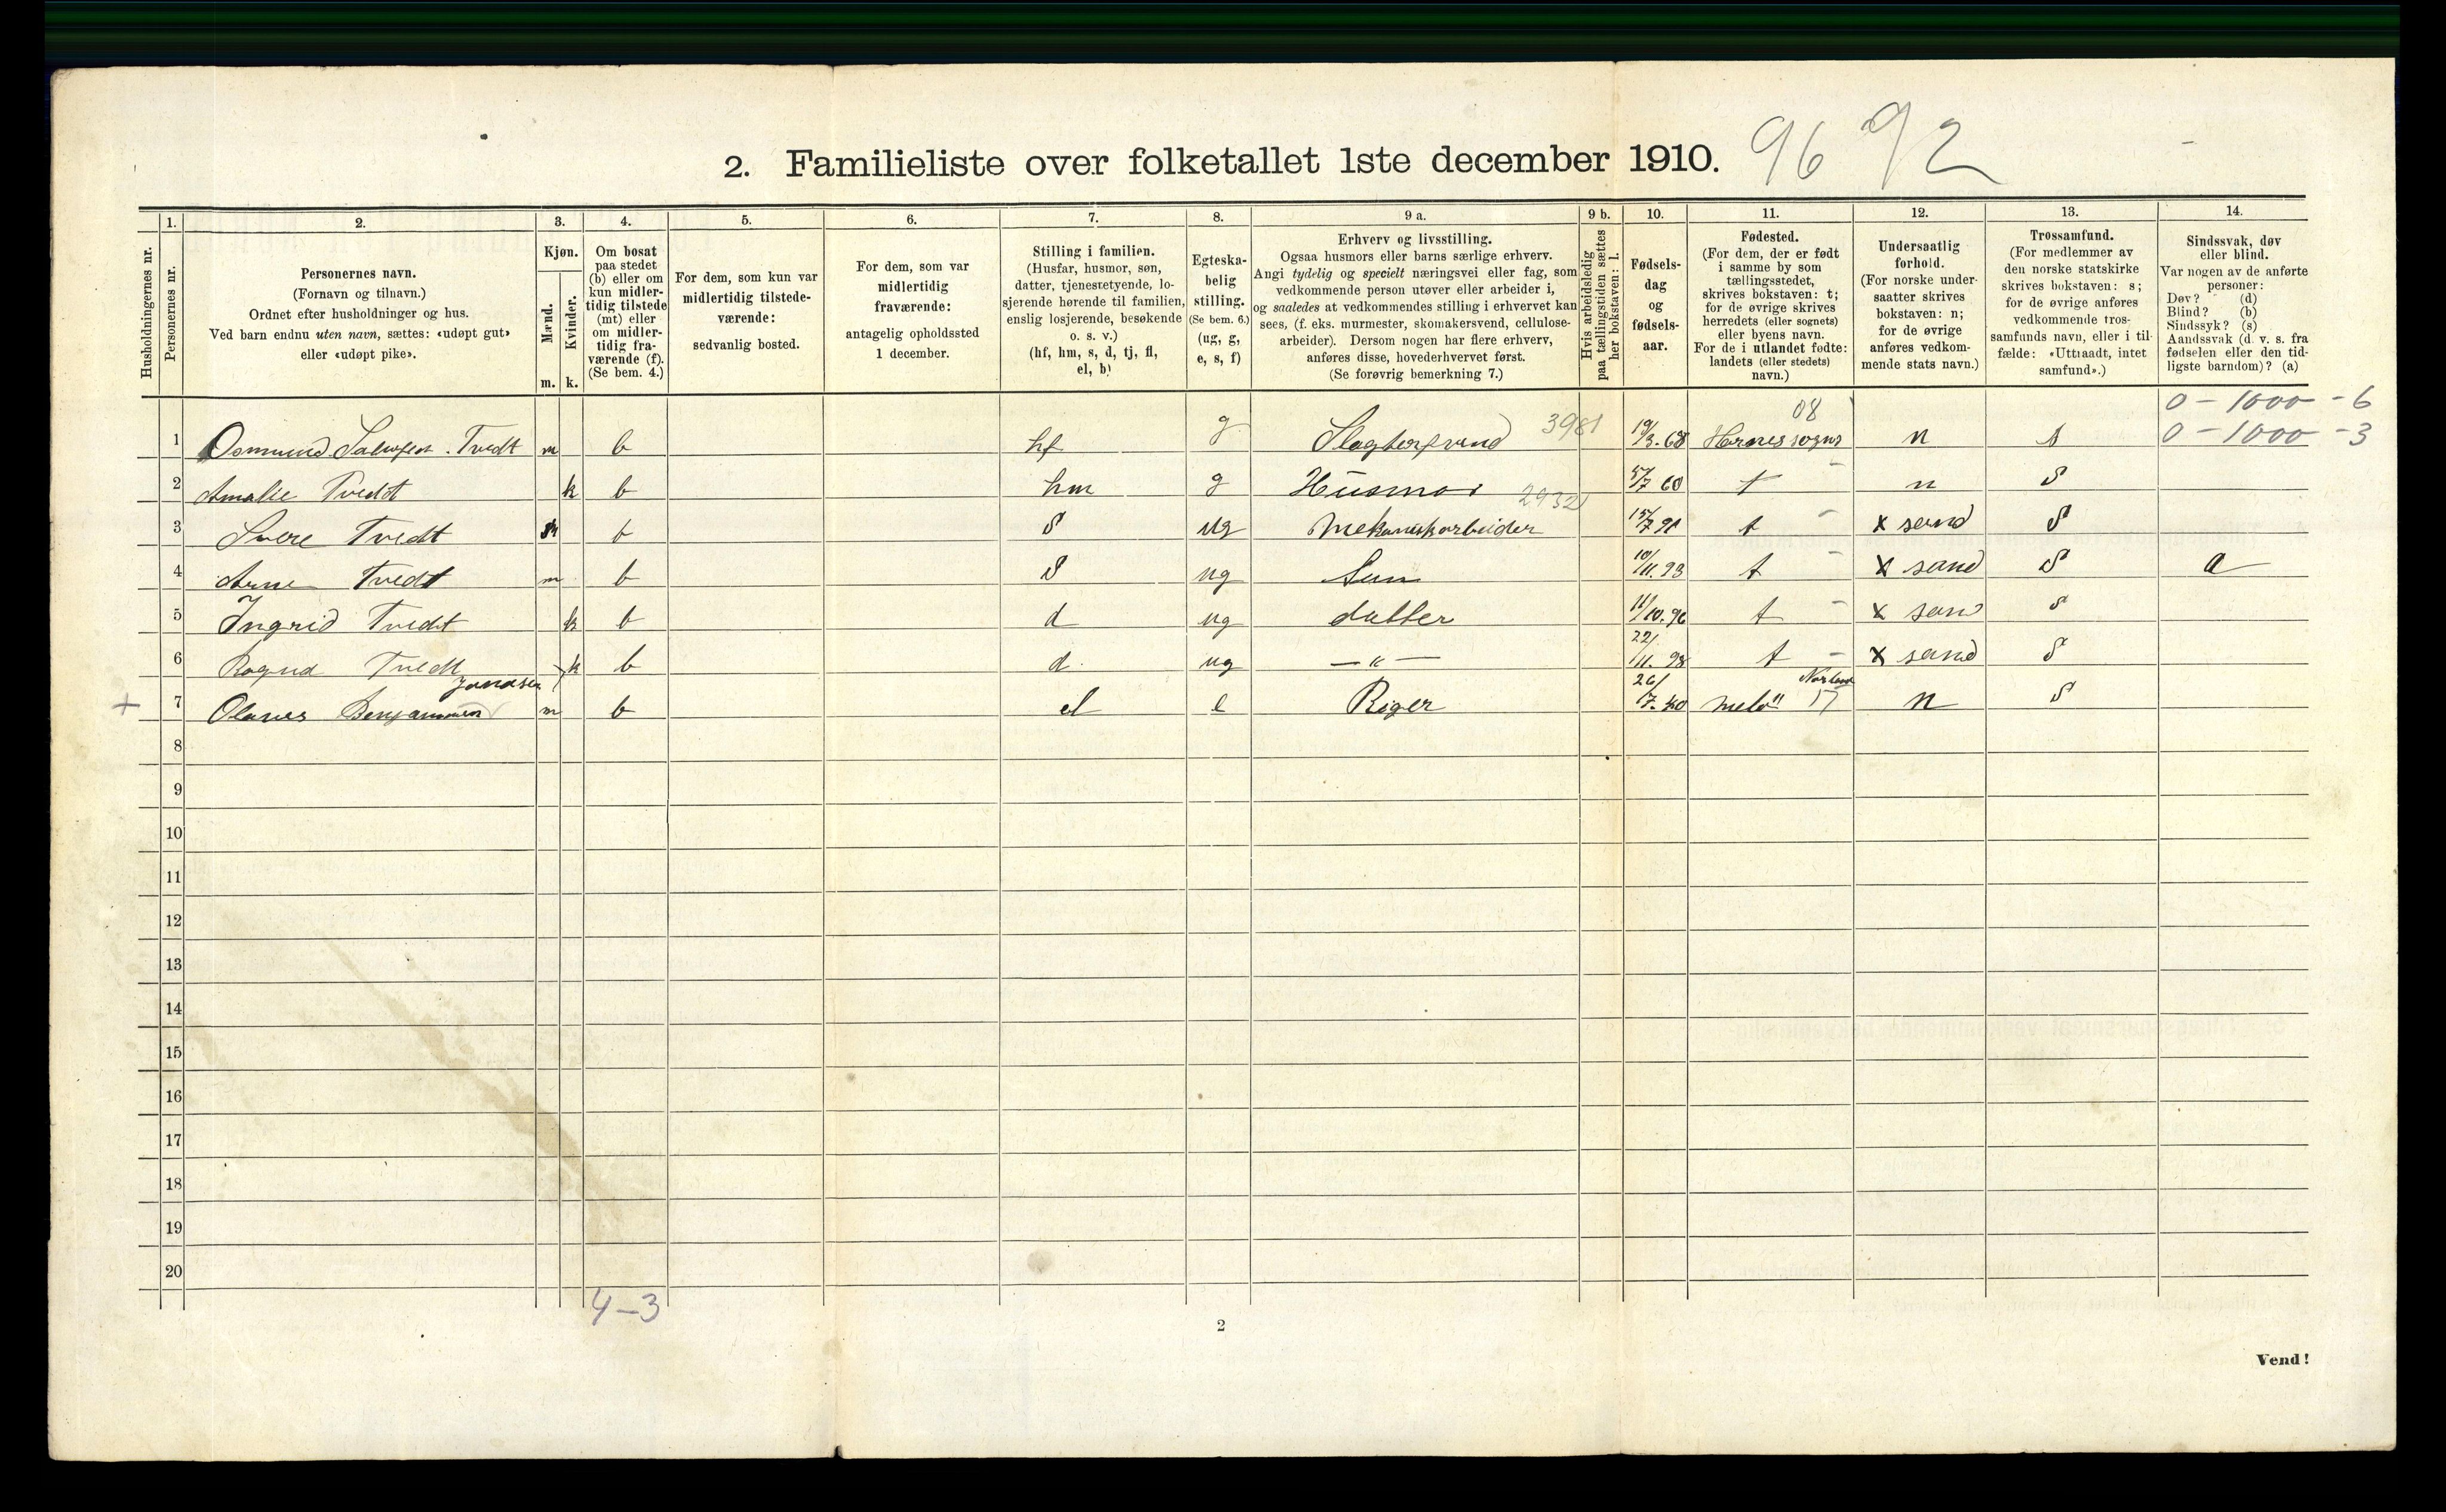 2. Familieliste over folketallet 1ste december 1910. 96 92
Husholdningernes nr.
1. Personernes nr.
2. Personernes navn.
(Fornavn og tilnavn.)
Ordnet efter husholdninger og hus.
Ved barn endnu uten navn, sættes: «udøpt gut»
eller «udøpt pike».
3. Kjøn.
Mænd. m.
Kvinder. k.
4. Om bosat
paa stedet
(b) eller om
kun midler-
tidig tilstede
(mt) eller
om midler-
tidig fra-
værende (f).
(Se bem. 4.)
5. For dem, som kun var
midlertidig tilstede-
værende:
sedvanlig bosted.
6. For dem, som var
midlertidig
fraværende:
antagelig opholdssted
1 december.
7. Stilling i familien.
(Husfar, husmor, søn,
datter, tjenestetyende, lo-
sjerende hørende til familien,
enslig losjerende, besøkende
o. s. v.)
(hf, hm, s, d, tj, fl,
el, b)
8. Egteska-
belig
stilling.
(Se bem. 6.)
(ug, g,
e, s, f)
9 a. Erhverv og livsstilling.
Ogsaa husmors eller barns særlige erhverv.
Angi tydelig og specielt næringsvei eller fag, som
vedkommende person utøver eller arbeider i,
og saaledes at vedkommendes stilling i erhvervet kan
sees, (f. eks. murmester, skomakersvend, cellulose-
arbeider). Dersom nogen har flere erhverv,
anføres disse, hovederhvervet først.
(Se forøvrig bemerkning 7.)
9 b. Hvis arbeidsledig
paa tællingstiden sættes
her bokstaven: l.
10. Fødsels-
dag
og
fødsels-
aar.
11. Fødested.
(For dem, der er født
i samme by som
tællingsstedet,
skrives bokstaven: t;
for de øvrige skrives
herredets (eller sognets)
eller byens navn.
For de i utlandet fødte:
landets (eller stedets)
navn.)
12. Undersaatlig
forhold.
(For norske under-
saatter skrives
bokstaven: n;
for de øvrige
anføres vedkom-
mende stats navn.)
13. Trossamfund.
(For medlemmer av
den norske statskirke
skrives bokstaven: s;
for de øvrige anføres
vedkommende tros-
samfunds navn, eller i til-
fælde: «Uttraadt, intet
samfund».)
14. Sindssvak, døv
eller blind.
Var nogen av de anførte
personer:
Døv? (d)
Blind? (b)
Sindssyk? (s)
Aandssvak (d. v. s. fra
fødselen eller den tid-
ligste barndom)? (a)
08 0 - 1000 - 6
1 Osmund Salvesen Tvedt m b hf g Slagtersvend 3981 19/3. 68 Hernes sogn n s 0 - 1000 - 3
2 Amalie Tvedt k b hm g Husmor 5/7 60 t n s
2932
3 Svere Tvedt m b s ug Mekaniskarbeider 15/7 91 t x sand s
4 Arne Tvedt m b s ug Søn 10/11. 93 t x sand s a
5 Ingrid Tvedt k b d ug datter 11/10. 96 t x sand s
6 Ragna Tvedt k b d. ug — " — 22/11. 98 t x sand s
Jonassen Norland
+ 7 Olaves Benjaminsen m b el e Riger 26/7. 40 Melø 17 n s
8
9
10
11
12
13
14
15
16
17
18
19
20
4-3
2
Vend!